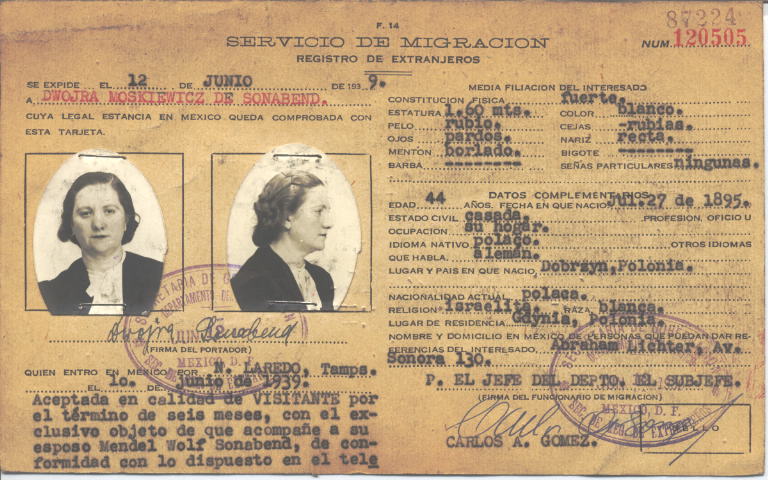 F. 14
SERVICIO DE MIGRACION
REGISTRO DE EXTRANJEROS
87224
NUM. 120505
SE EXPIDE EL 12 DE JUNIO DE 1939.
A DWOJRA MOSKIEWICZ DE SONABEND.
CUYA LEGAL ESTANCIA EN MEXICO QUEDA COMPROBADA CON
ESTA TARJETA.
Dwojra Sonabend
(FIRMA DEL PORTADOR)
MEXICO, D. F.
QUIEN ENTRO EN MEXICO POR N. LAREDO, Tamps.
EL 1o. DE junio de 1939.
Aceptada en calidad de VISITANTE por
el término de seis meses, con el ex-
clusivo objeto de que acompañe a su
esposo Mendel Wolf Sonabend, de con-
formidad con lo dispuesto en el tele
MEDIA FILIACION DEL INTERESADO
CONSTITUCION FISICA fuerte.
ESTATURA 1.60 mts. COLOR blanco.
PELO rubio. CEJAS -rubias.
OJOS pardos. NARIZ recta.
MENTON borlado. BIGOTE --------
BARBA -------- SEÑAS PARTICULARES ningunas.
DATOS COMPLEMENTARIOS
EDAD, 44 AÑOS. FECHA EN QUE NACIO Jul. 27 de 1895.
ESTADO CIVIL casada. PROFESION, OFICIO U
OCUPACION su hogar.
IDIOMA NATIVO polaco. OTROS IDIOMAS
QUE HABLA. alemán.
LUGAR Y PAIS EN QUE NACIO Dobrzyn, Polonia.
NACIONALIDAD ACTUAL polaca.
RELIGION israelita. RAZA blanca.
LUGAR DE RESIDENCIA Gdynia, Polonia.
NOMBRE Y DOMICILIO EN MEXICO DE PERSONAS QUE PUEDAN DAR RE-
FERENCIAS DEL INTERESADO, Abraham Lichter, Av.
Sonora 130.
P. EL JEFE DEL DEPTO. EL SUBJEFE.
(FIRMA DEL FUNCIONARIO DE MIGRACION)
MEXICO, D. F.
SELLO
CARLOS A. GOMEZ.